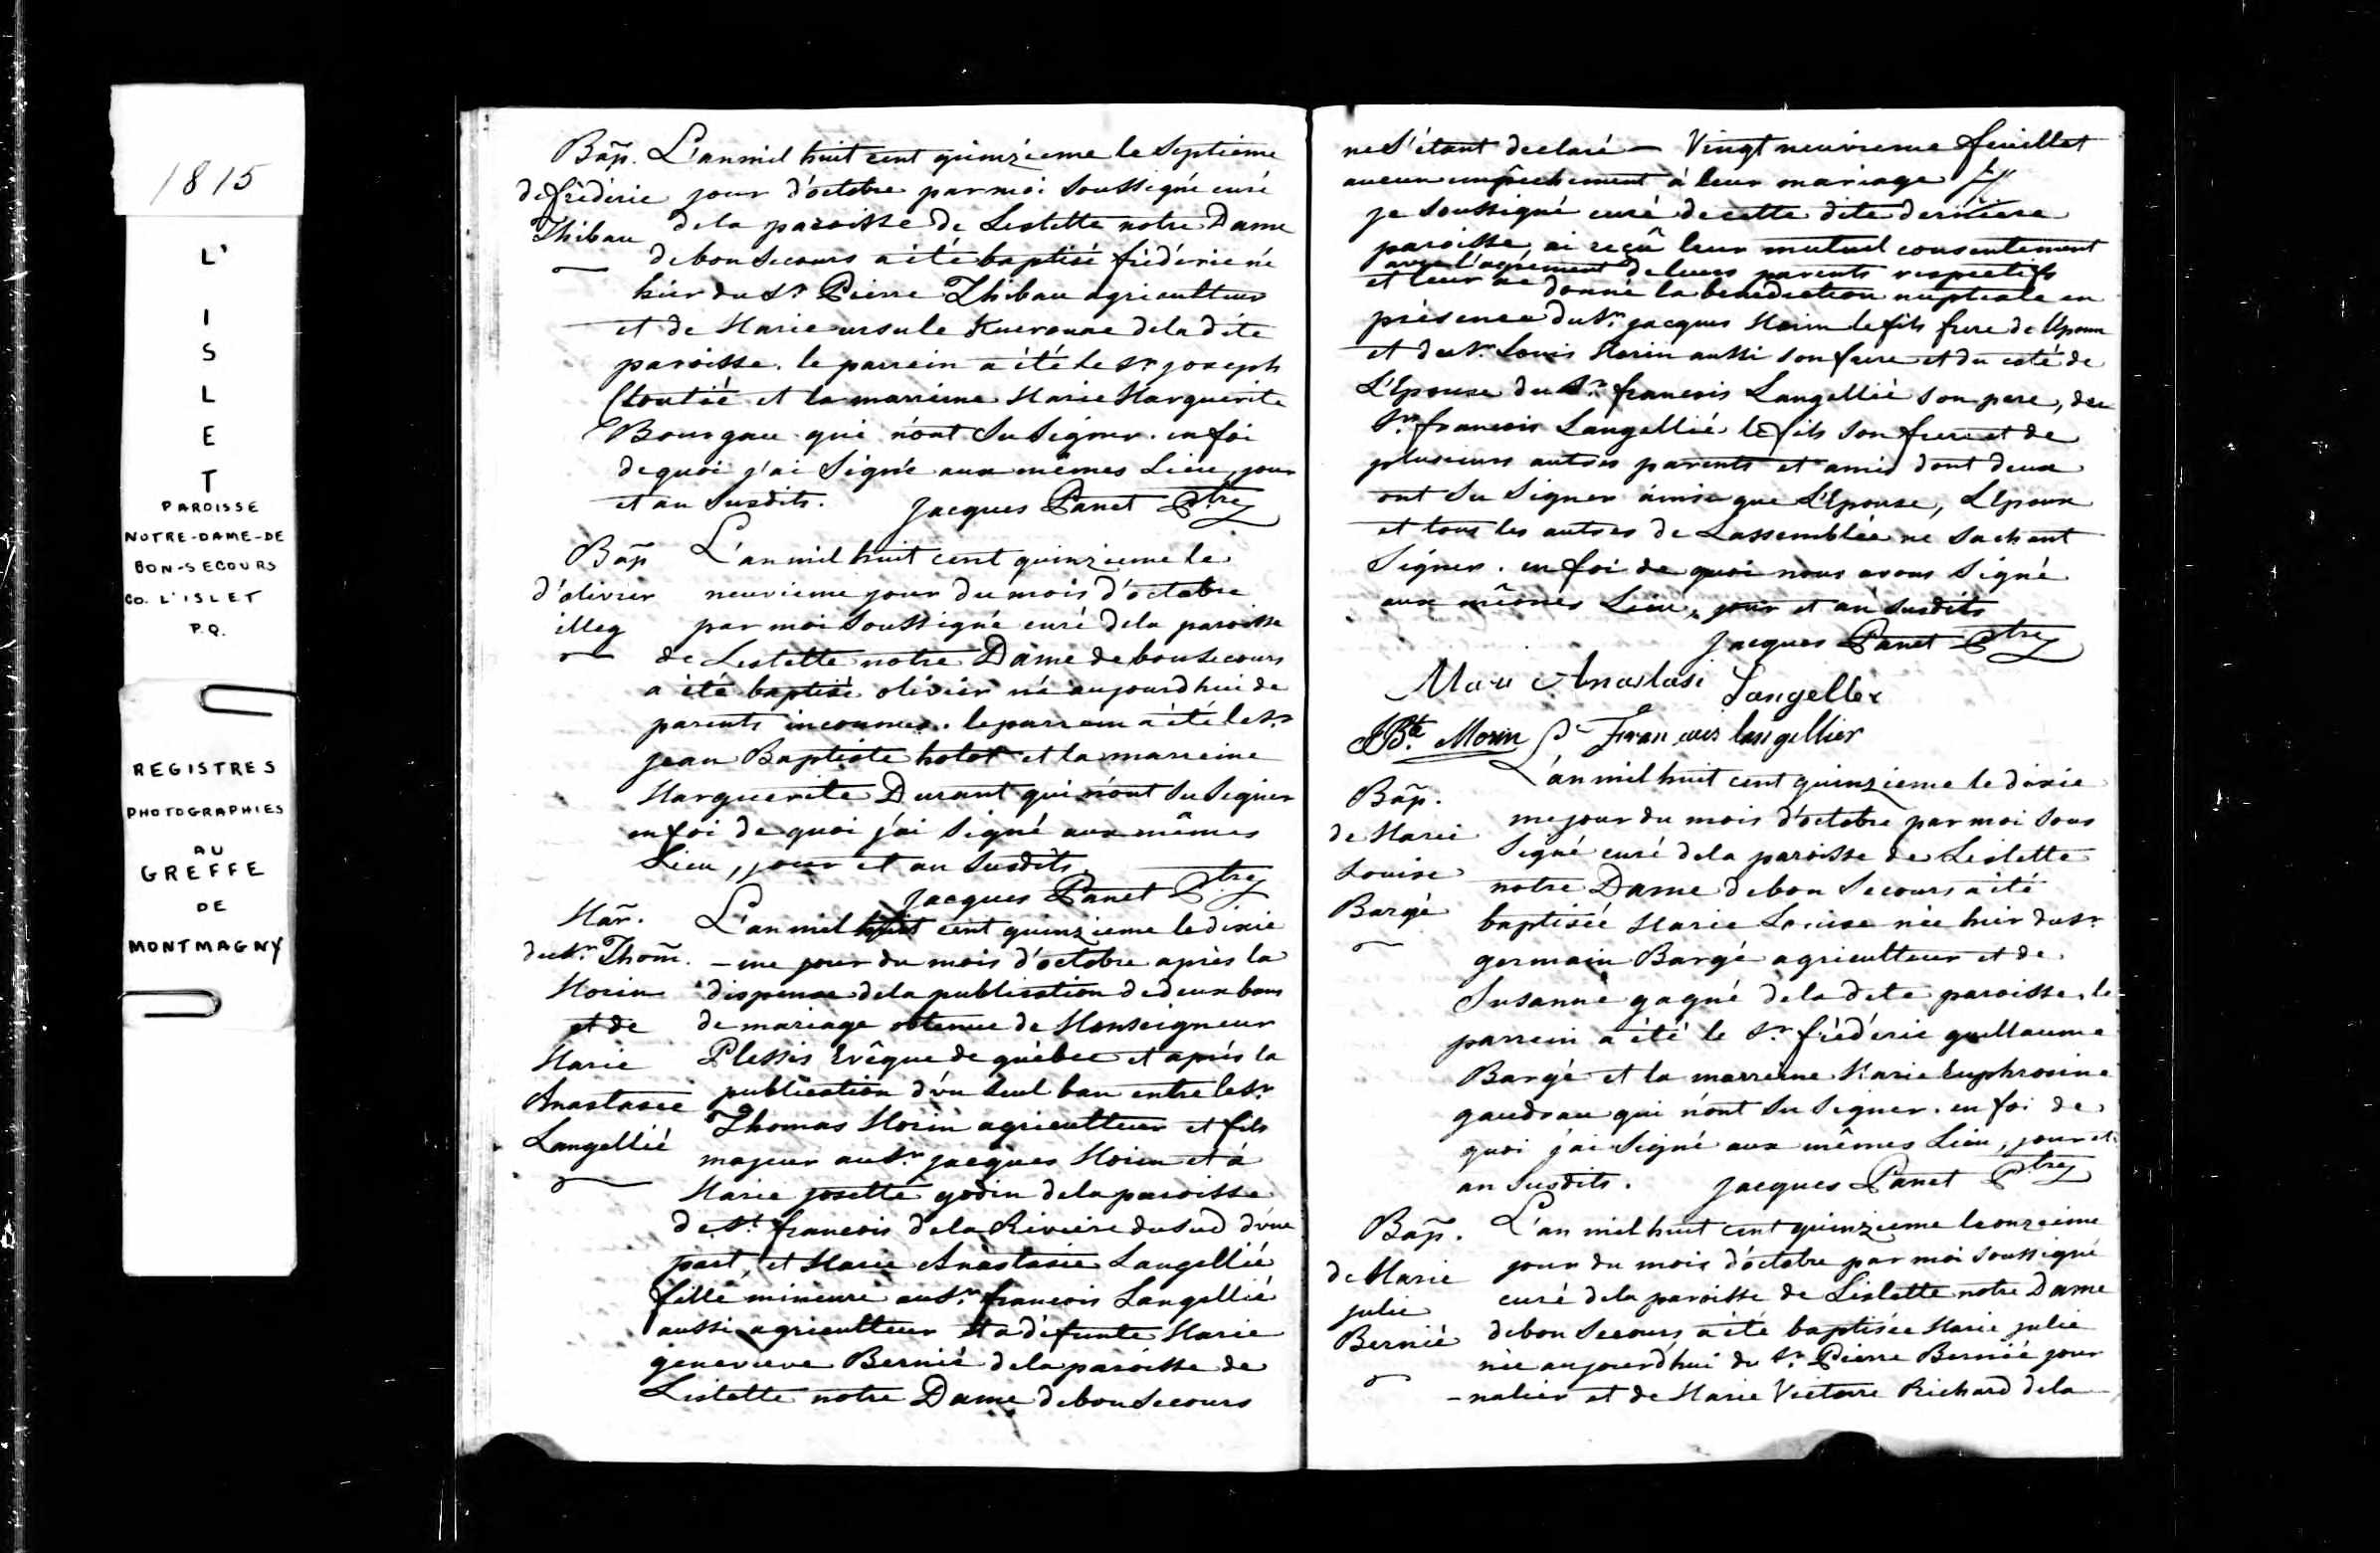 1815
L'
I
S
L
E
T
PAROISSE
NOTRE-DAME-DE
BON-SECOURS
CO. L'ISLET
P.Q.
REGISTRES
PHOTOGRAPHIES
AU
GREFFE
DE
MONTMAGNY
Bap. L'an mil huit cent quinzieme le Septieme
de frèdèric jour d'octobre par moi Soussigné curé
Thibau dela paroisse de Lislette notre Dame
de bon Secours a été baptisé frédéric né
hier du Sr. Pierre Thibau agriculteur
et de Marie ursule Kuerouac dela dite
paroisse. le parrein a été le Sr. joseph
Cloutié et la marreine Marie Marguerite
Bourgau qui n'ont Su Signer. en foi
de quoi j'ai Signé aux mêmes Lieu, jour
et an Susdits. Jacques Panet Ptre
Bap L'an mil huit cent quinzieme le
d'olivier neuvieme jour du mois d'octobre
illeg par moi Soussigné curé dela paroisse
de Lislette notre Dame de bon Secours
a été baptisé olivier né aujourdhui de
parents inconnus. le parrein a été le Sr.
jean Baptiste holot et la marreine
Marguerite Durant qui n'ont Su Signer
en foi de quoi j'ai Signé aux mêmes
Lieu, jour et an Susdits.
Jacques Panet Ptre
Mar. L'an mil huit cent quinzieme le dixie
du Sr. Thom. -me jour du mois d'octobre après la
Morin dispense dela publication de deux bans
et de de mariage obtenue de Monseigneur
Marie Plessis Evêque de québec et après la
Anastasie publication d'un Seul ban entre le Sr.
Langellié Thomas Morin agriculteur et fils
majeur au Sr. jacques Morin et à
Marie josette godin dela paroisse
de St. francois dela Riviere du Sud d'une
part, et Marie Anastasie Langellié
fille mineure au Sr. francois Langellié
aussi agriculteur et a défunte Marie
genevieve Bernié dela paroisse de
Lislette notre Dame de bon Secours
ne S'étant declaré — Vingt neuvieme feuillet
aucun empêchement à leur mariage
je Soussigné curé de cette dite derniere
paroisse, ai reçû leur mutuel consentement
avec l'agrément de leurs parents respectifs
et leur ai donné la benediction nuptiale en
présence du Sr. jacques Morin le fils frere de l'Epoux
et du Sr. Louis Morin aussi son frere et du coté de
L'Epouse du Sr. francois Langellié son pere, du
Sr. francois Langellié le fils son frere et de
plusieurs autres parents et amis dont deux
ont Su Signer ainsi que L'Epouse, L'Epoux
et tous les autres de L'assemblée ne Sachant
Signer. en foi de quoi nous avons Signé
aux mêmes Lieu, jour et an Susdits
Jacques Panet Ptre
Anastasi Langellier
JBte. Morin François langellier
Bap. L'an mil huit cent quinzieme le dixie
de Marie me jour du mois d'octobre par moi Sous
Louise Signé curé dela paroisse de Lislette
Bargé notre Dame de bon Secours a été
baptisée Marie Louise née hier du Sr.
germain Bargé agriculteur et de
Susanne gagné dela dite paroisse, le
parrein a été le Sr. frédéric guillaume
Bargé et la marreine Marie Euphrosine
gaudrau qui n'ont Su Signer. en foi de
quoi j'ai Signé aux mêmes Lieu, jour et
an Susdits. Jacques Panet Ptre
Bap. L'an mil huit cent quinzieme le onzieme
de Marie jour du mois d'octobre par moi Soussigné
julie curé dela paroisse de Lislette notre Dame
Bernié de bon Secours a été baptisée Marie julie
née aujourd'hui du Sr. Pierre Bernié jour
-nalier et de Marie Victoire Richard dela